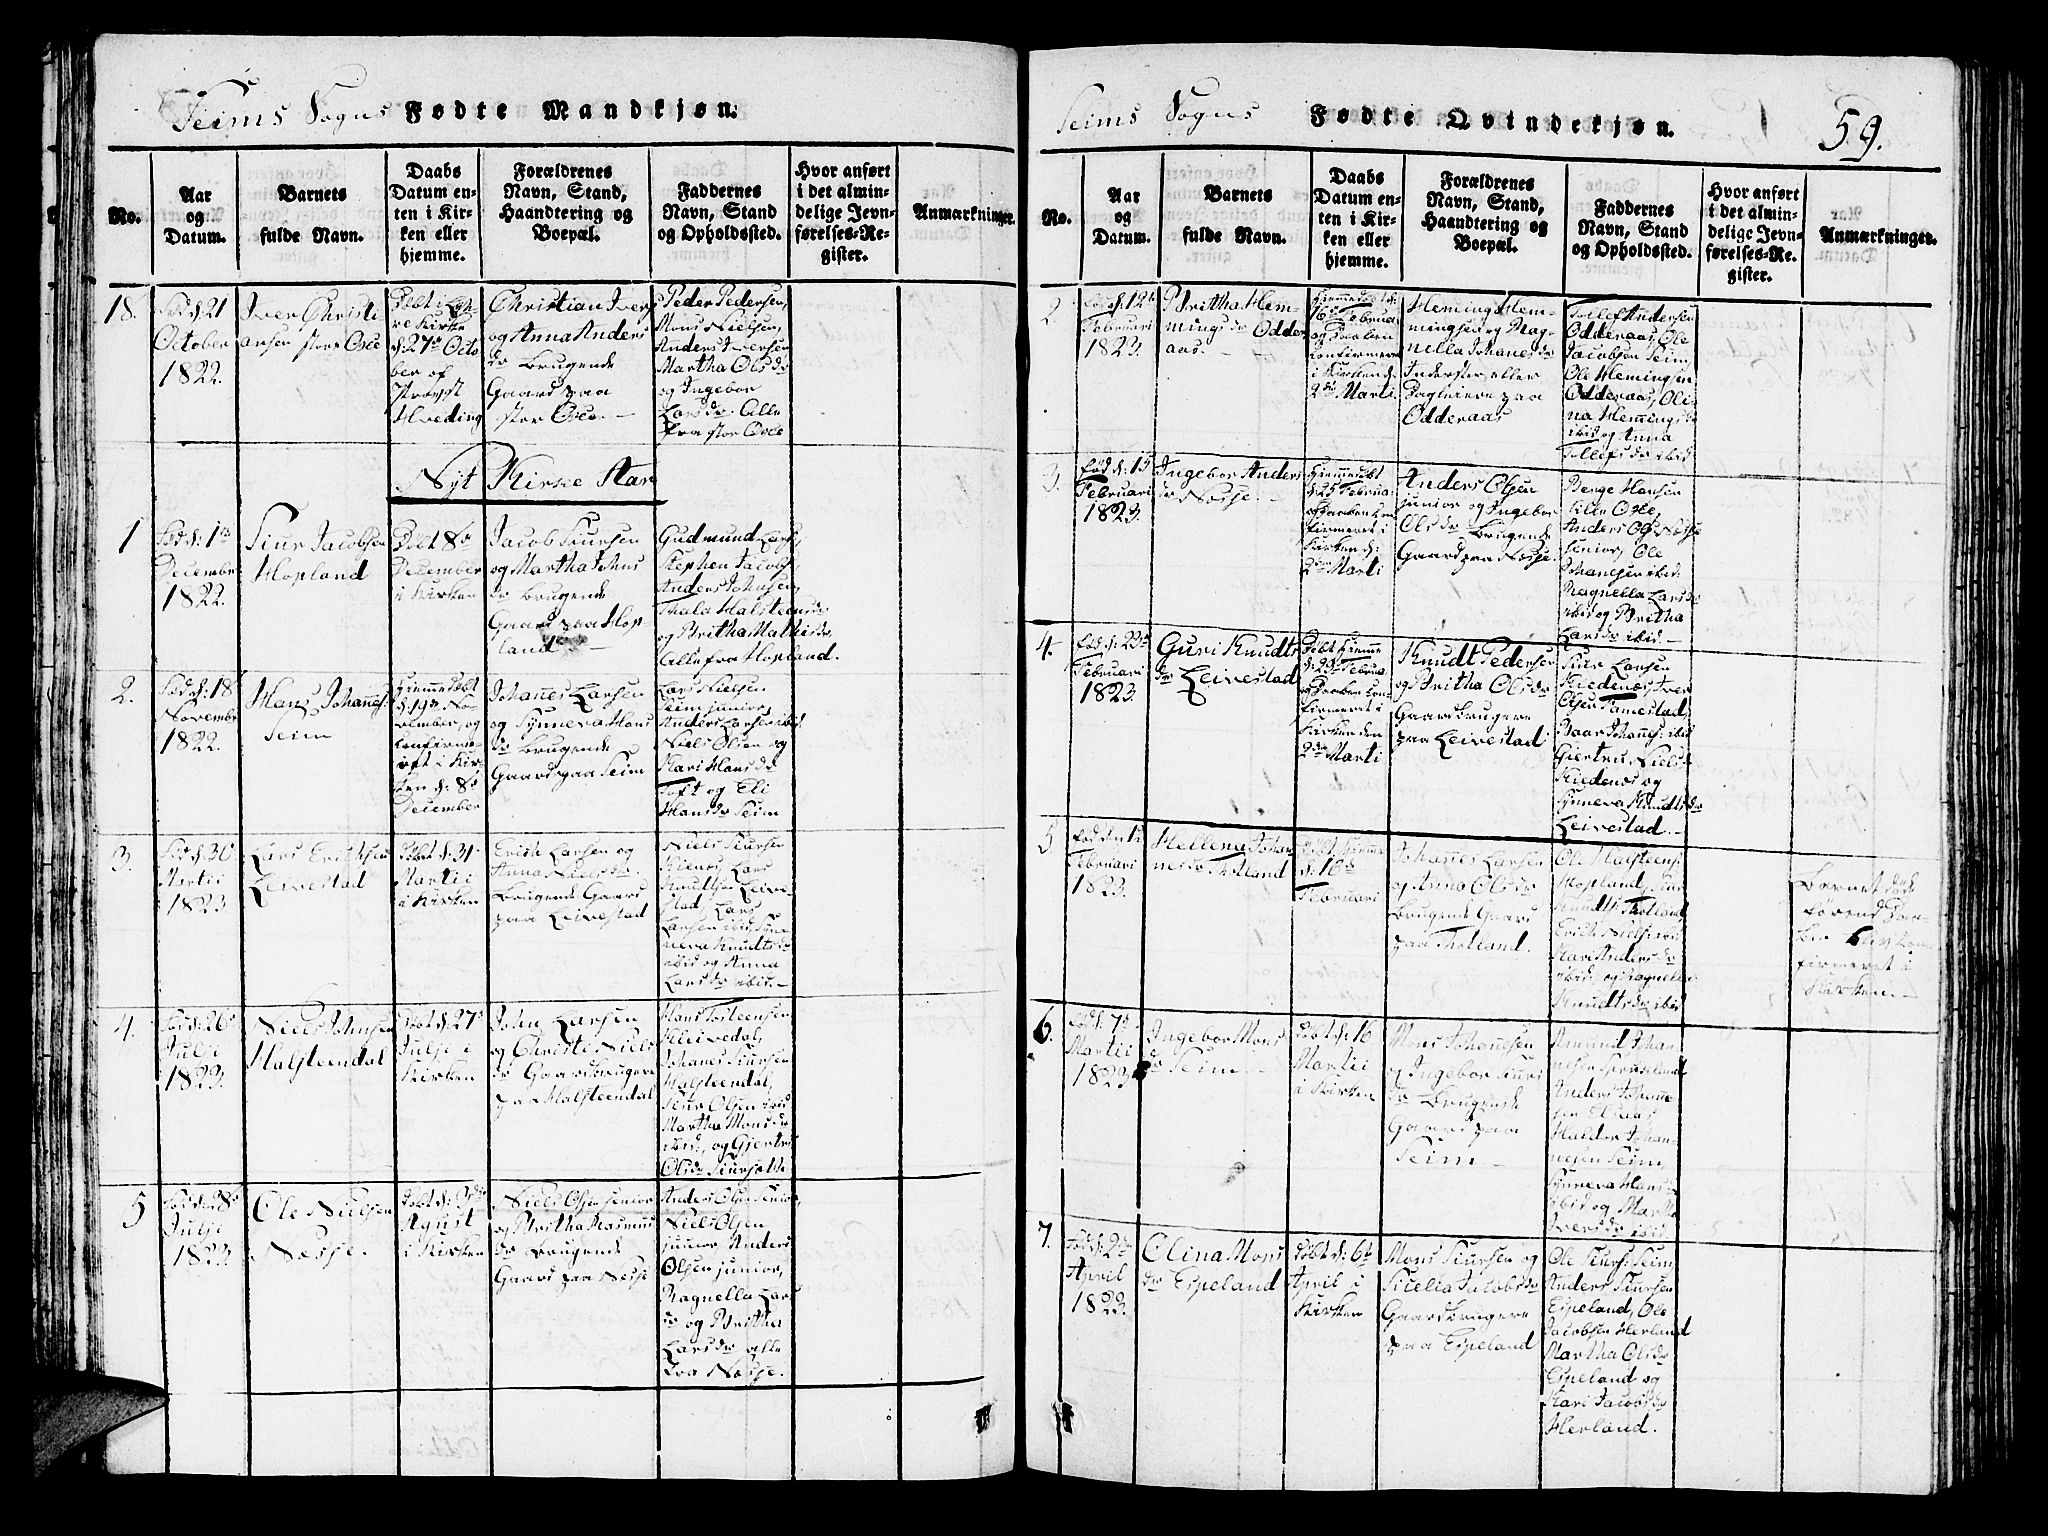 Seims Sogns Fødte Mandkjøn.
No.
Aar
og
Datum.
Barnets
fulde Navn.
Daabs
Datum en-
ten i Kir-
ken eller
hjemme.
Forældrenes
Navn, Stand,
Haandtering og
Boepæl.
Faddernes
Navn, Stand
og Opholdssted.
Hvor anført
i det almin-
delige Jevn-
førelses-Re-
gister.
Anmærkninger.
18.
Fød d: 21
October
1822.
Iver Christi
ansen store Osce
Døbt i
re Kirke
d: 27de Octo
ber af
Provst
Hveding
Christian Iver
og Anna Anders
dr Brugende
Gaard paa
stor Osce.
Peder Pedersen,
Mons Nielsen,
Anders Iversen
Martha Olsdr
og Ingebor
Larsdr Alle
fra stor Osce
Nyt Kirke Aar
1
Fød d: 1ste
December
1822.
Siur Jacobsen
Hopland
Døbt 8de
December
i Kirken
Jacob Siursen
og Martha Johns
dr Brugende
Gaard paa Hop-
land
Gudmund Lars:
Stephen Jacobs:
Anders Johnsen,
Thala Halsteensdr
og Britha Mathisdr
Alle fra Hopland.
2.
Fød d: 18
November
1822.
Hans Johannes:
Seim
Hjemmedøbt
d: 19de No-
vember, og
Confirme-
ret i Kir-
ken d: 8de
December
Johanes Larsen
og Synneva Hans
dr Brugende
Gaard paa Seim
Lars Nielsen
Seim junior,
Anders Larsen ibid
Niels Olsen og
Kari Hansdr
Toft og Eli
Hansdr Seim
3.
Fød d: 30
Martii
1823
Lars Erichsen
Leivestad
Døbt d: 31
Martii
i Kirken
Erich Larsen og
Anna Nielsdr
Brugende Gaard
paa Leivestad
Niels Siursen
Kienos, Lars
Knudtsen Leive-
stad, Lars
Larsen ibid, Syn-
neva Knudtsdr
ibid og Anna
Larsdr ibid.
4.
Fød d: 26de
Julje
1823.
Niels Johnsen
Halsteendal
Døbt d: 27de
Julje i
Kirken
John Larsen
og Christi Niels
dr Gaardbrugere
paa Halsteendal
Hans Torsteensen
Kleivedal,
Johanes Siursen
Halsteendal,
Siur Olsen ibid
Martha Monsdr
ibid, og Gjertru
Olsdr Siursætte
5
Fød d: 28de
Julje
1823.
Ole Nielsen
Næsse.
Døbt d: 3die
Agust
i Kirken
Niels Olsen senior
og Britha Rasmus
dr Brugende
Gaard paa Næsse
Anders Olsen senior,
Niels Olsen
junior, Anders
Olsen junior,
Ragnella Lars
dr og Britha
Larsdr alle
fra Næsse.
Seims Sogns Fødte Qvindekjøn.
59.
No.
Aar
og
Datum.
Barnets
fulde Navn.
Daabs
Datum en-
ten i Kir-
ken eller
hjemme.
Forældrenes
Navn, Stand,
Haandtering og
Boepæl.
Faddernes
Navn, Stand
og Opholdssted.
Hvor anført
i det almin-
delige Jevn-
førelses-Re-
gister.
Anmærkninger.
2
Fød d: 12te
Februari
1823.
Britha Hem-
mingsdr Odder
aas.
Hjemmedøbt d:
16de Februari
og Daaben
Confirmeret
i Kirken d:
2den Marti
Heming Hem-
mingsen og Rag-
nella Johanesdr
Inderster eller
Dagleiere paa
Odderaas
Tollef Andersen
Odderaas, Ole
Jacobsen Seim,
Ole Hemingsen
Odderaas, Oli-
na Hemingsdr
ibid og Anna
Tollefsdr ibid
3.
Fød d: 15
Februari
1823.
Ingebor Anders
dr Næsse.
Hjemmedøbt
d: 25 Februa:
og Daaben Con
firmeret i
Kirken d:
2den Marti
Anders Olsen
junior og Ingebor
Olsdr Brugende
Gaard paa Næsse
Berge Hansen
Lille Osce,
Anders Ols: Næsse
senior, Ole
Johanesen ibid:
Ragnella Larsdr
ibid og Britha
Larsdr ibid
4.
Fød d: 23de
Februari
1823.
Guri Knudts
dr Leivestad
Døbt Hjemme
d: 23de Februa
og Daaben Con
firmeret i
Kirken den
2den Marti
Knudt Pedersen
og Britha Olsdr
Gaardbrugere
paa Leivestad
Siur Larsen
Kiedenos, Iver
Olsen Famestad,
Baar Johanes: ibid
Gjertru Nielsdr
Kiedenos og
Synneva Knudtsdr
Leivestad.
5
Fød den 12
Februari
1823.
Hellena Johan
nesdr Tholland
Døbt Hjemme
d: 16de
Februari
Johanes Larsen
og Anna Olsdr
Brugende Gaard
paa Tholland.
Ole Halsteens:
Hopland, Siur
Knudts: Tholland
Erich Niels: ibid
Kari Andersdr
ibid: og Ragnella
Knudtsdr ibid
Barnet døde
førend Daa-
ben blev Con-
firmeret i
Kirken.
6.
Fød d: 7de
Martii
1823
Ingebor Mons
dr Seim
Døbt d: 16
Martii
i Kirken
Mons Johanesen
og Ingebor Siurs
dr Brugende
Gaard paa
Seim
Amund Johan-
nesen
Anders Johanne-
sen Elsaas
Haldor Johan-
nesen Seim,
Synneva Hansdr
ibid og Martha
Iversdr ibid
7.
Fød d: 2den
April
1823.
Olina Mons
dr Espeland
Døbt d: 6te
April i
Kirken
Mons Siursen og
Sicelia Jacobsdr
Gaardbrugere
paa Espeland
Ole Siurs: Seim
Anders Siursen
Espeland, Ole
Jacobsen Herland
Martha Olsdr
Espeland og
Kari Jacobsdr
Herland.